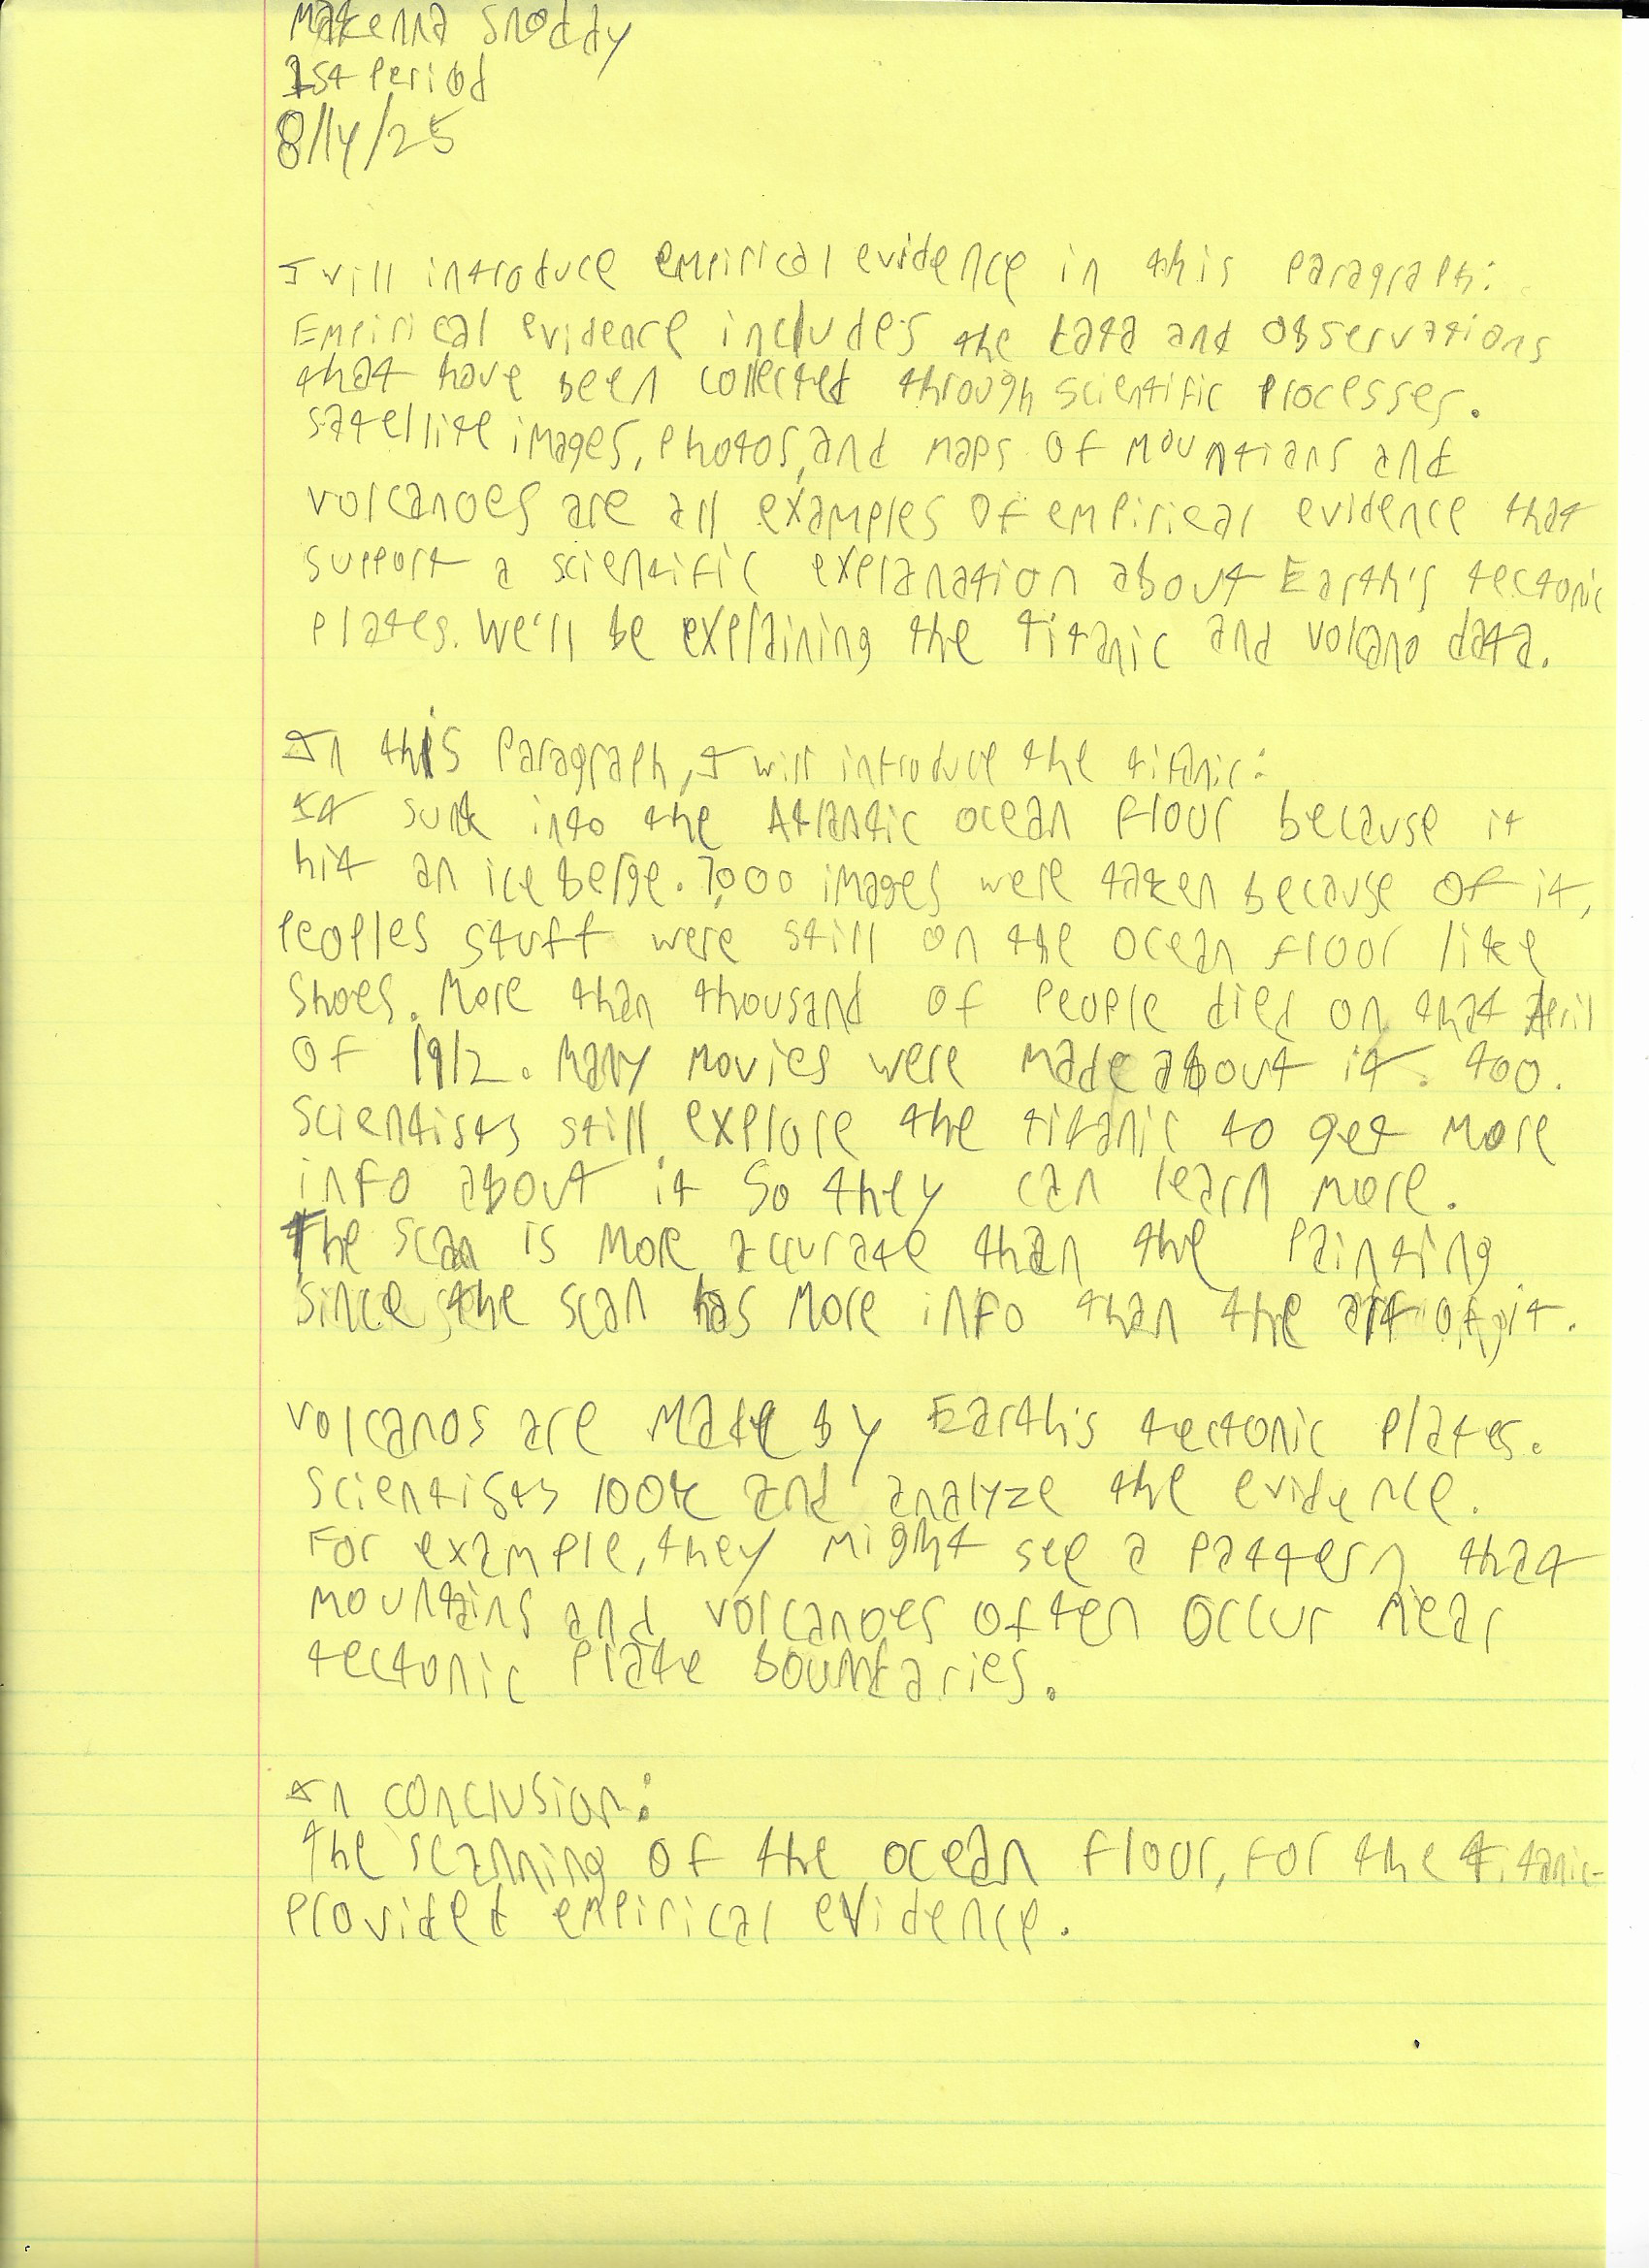 Makenna Snoddy
1st Period
8/14/25
I will introduce empirical evidence in this paragraph:
Empirical evidence includes the data and observations
that have been collected through scientific processes.
satellite images, photos, and maps of mountians and
volcanoes are all examples of empirical evidence that
support a scientific explanation about Earth's tectonic
plates. We'll be explaining the titanic and volcano data.
In this paragraph, I will introduce the titanic:
It sunk into the Atlantic ocean floor because it
hit an ice berge. 7,000 images were taken because of it,
peoples stuff were still on the ocean floor like
shoes. More than thousand of people died on that April
of 1912. Many movies were made about it too.
scientists still explore the titanic to get more
info about it so they can learn more.
The scan is more accurate than the painting
since the scan has more info than the art of it.
volcanos are made by Earth's tectonic plates.
scientists look and analyze the evidence.
For example, they might see a pattern that
mountains and volcanoes often occur near
tectonic plate boundaries.
In conclusion:
the scanning of the ocean floor, for the titanic
provided empirical evidence.